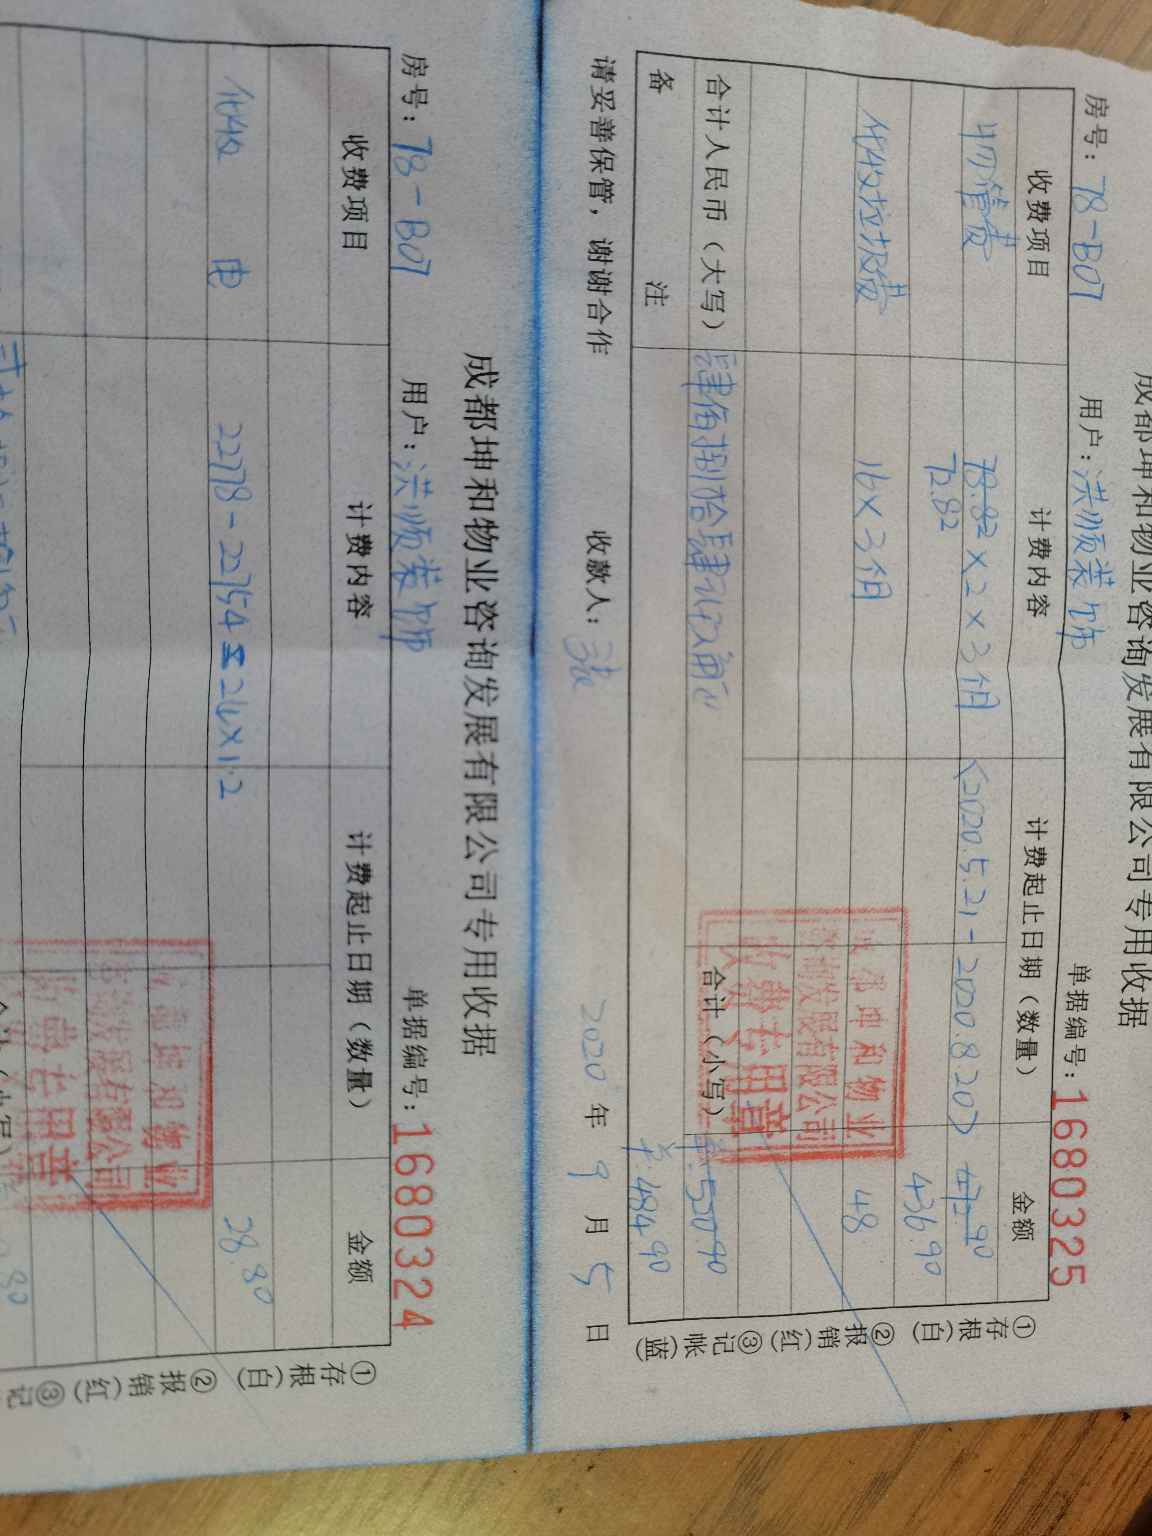 成都坤和物业咨询发展有限公司专用收据
房号：78-B07 用户：洪顺装饰 单据编号：1680325
收费项目 计费内容 计费起止日期（数量） 金额
物管费 78.82×2×3个月 (2020.5.21-2020.8.20)
72.82 436.90
代收垃圾费 16×3个月 48
合计人民币（大写） 肆佰捌拾肆元玖角正 合计（小写） 羊:520.90
备 注 羊:484.90
请妥善保管，谢谢合作 收款人： 2020年9月5日
①存根(白) ②报销(红) ③记帐(蓝)
成都坤和物业
咨询发展有限公司
收费专用章
成都坤和物业咨询发展有限公司专用收据
房号：78-B07 用户：洪顺装饰 单据编号：1680324
收费项目 计费内容 计费起止日期（数量） 金额
代收 电 22778-22754=24×1.2 28.80
①存根(白) ②报销(红) ③记